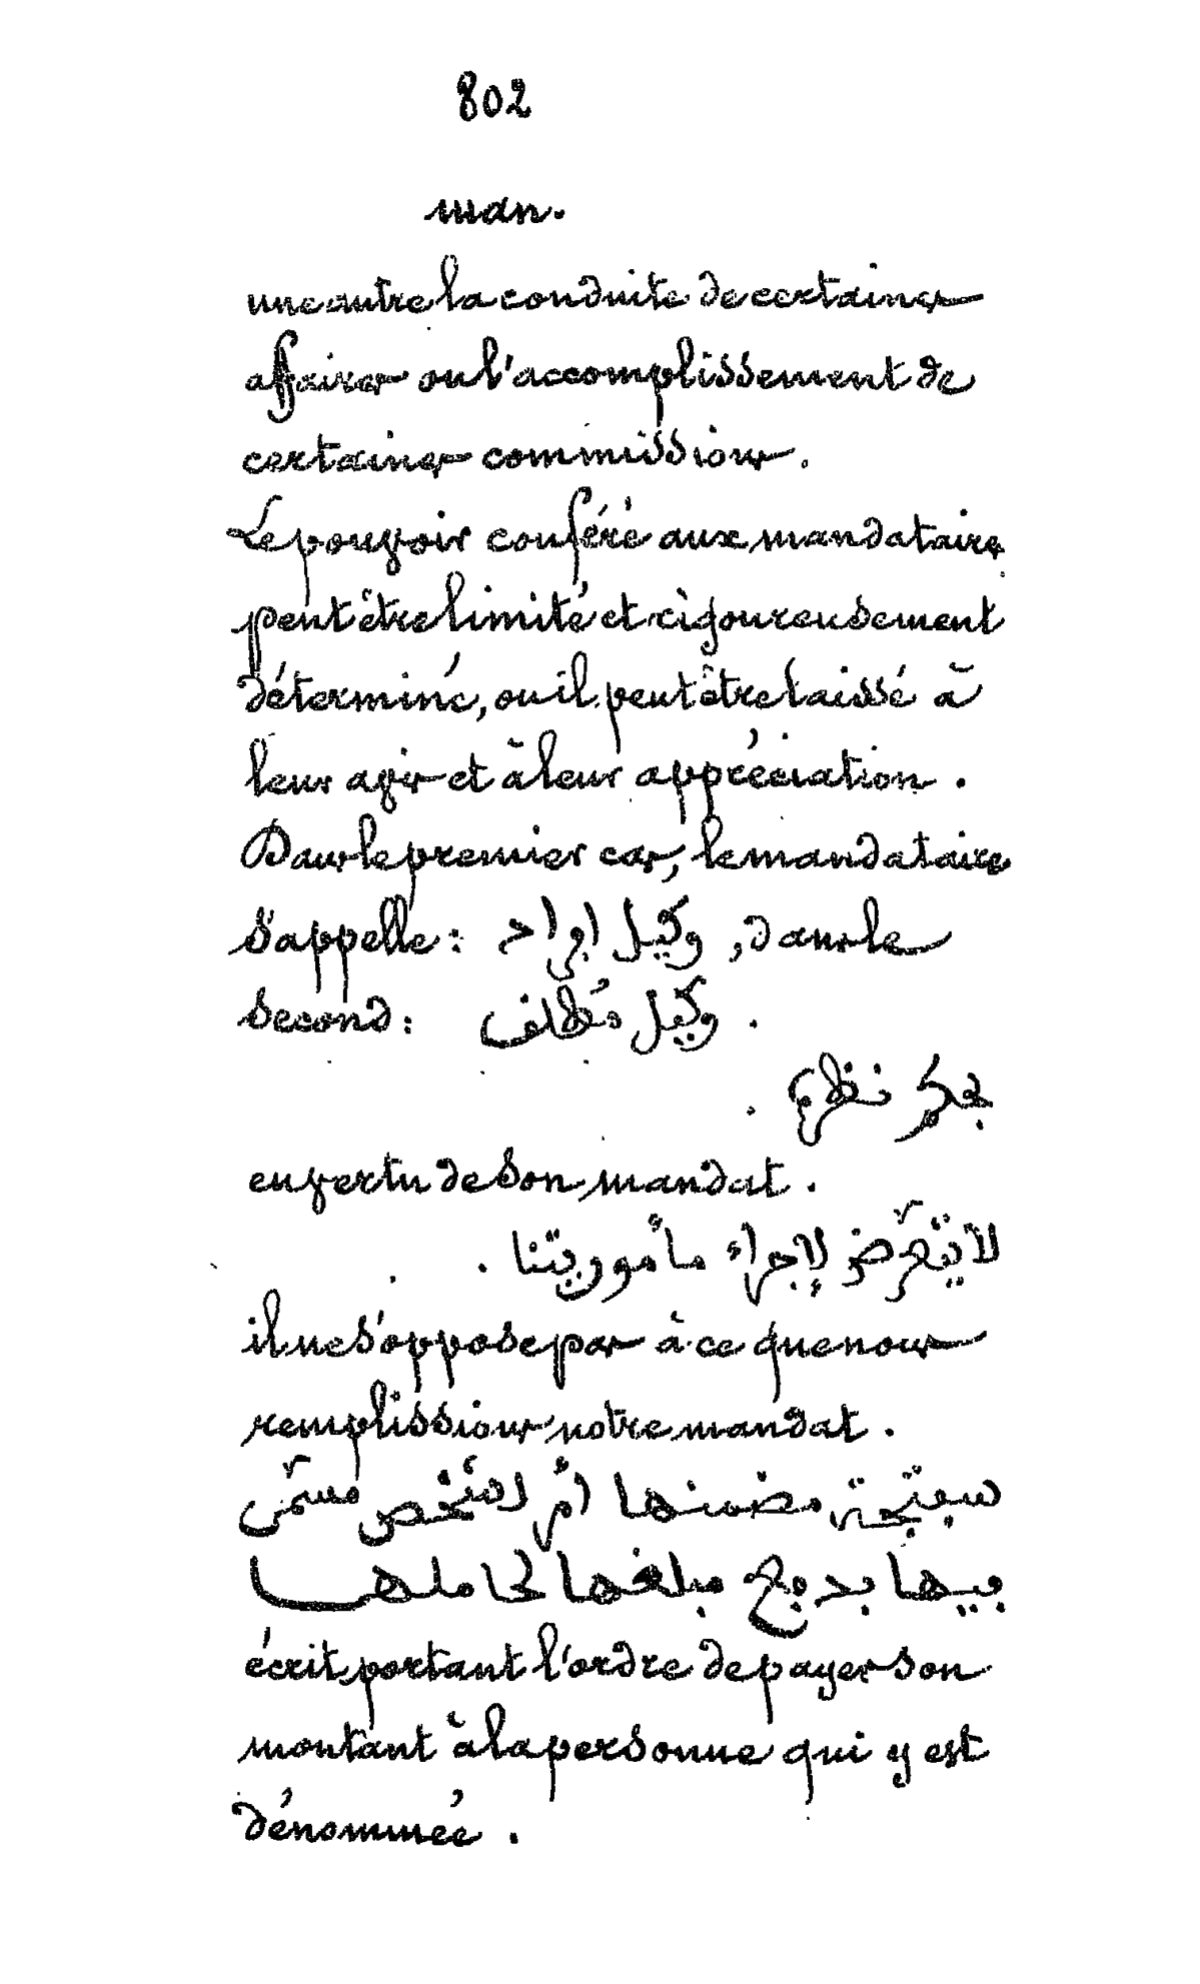 802
man.
une autre la conduite de certaines
affaires ou l'accomplissement de
certaines commissions.
Le pouvoir conféré aux mandataires
peut être limité et rigoureusement
déterminé, ou il peut être laissé à
leur agir et à leur appréciation.
Dans le premier cas, le mandataire
s'appelle: وكيل ابراد, dans le
second: وكيل مُطلف.
بحكم نظره.
en vertu de son mandat.
لا يتعرّض لإجراء مأموريتنا.
il ne s'oppose pas à ce que nous
remplissions notre mandat.
سبتجة مضمنها أمر لشخص مسمّى
بيها بدبع مبلغها لحاملها
écrit portant l'ordre de payer son
montant à la personne qui y est
dénommée.